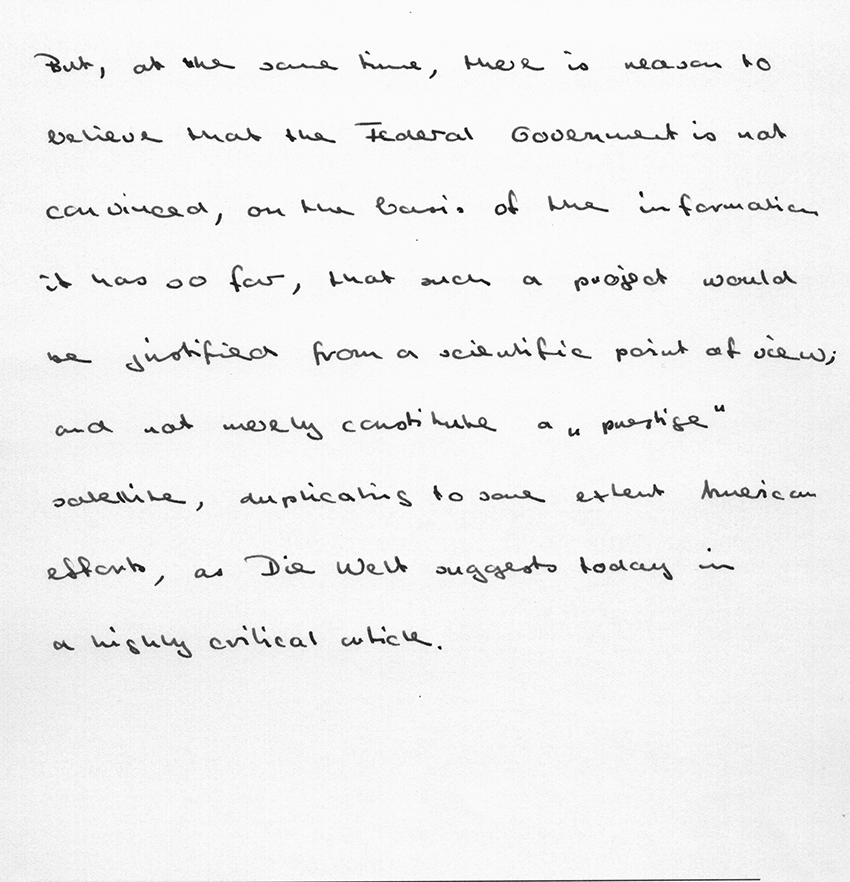 But, at the same time, there is reason to
believe that the Federal Government is not
convinced, on the basis of the information
it has so far, that such a project would
be justified from a scientific point of view;
and not merely constitute a „prestige“
satellite, duplicating to some extent American
efforts, as Die Welt suggests today in
a highly critical article.